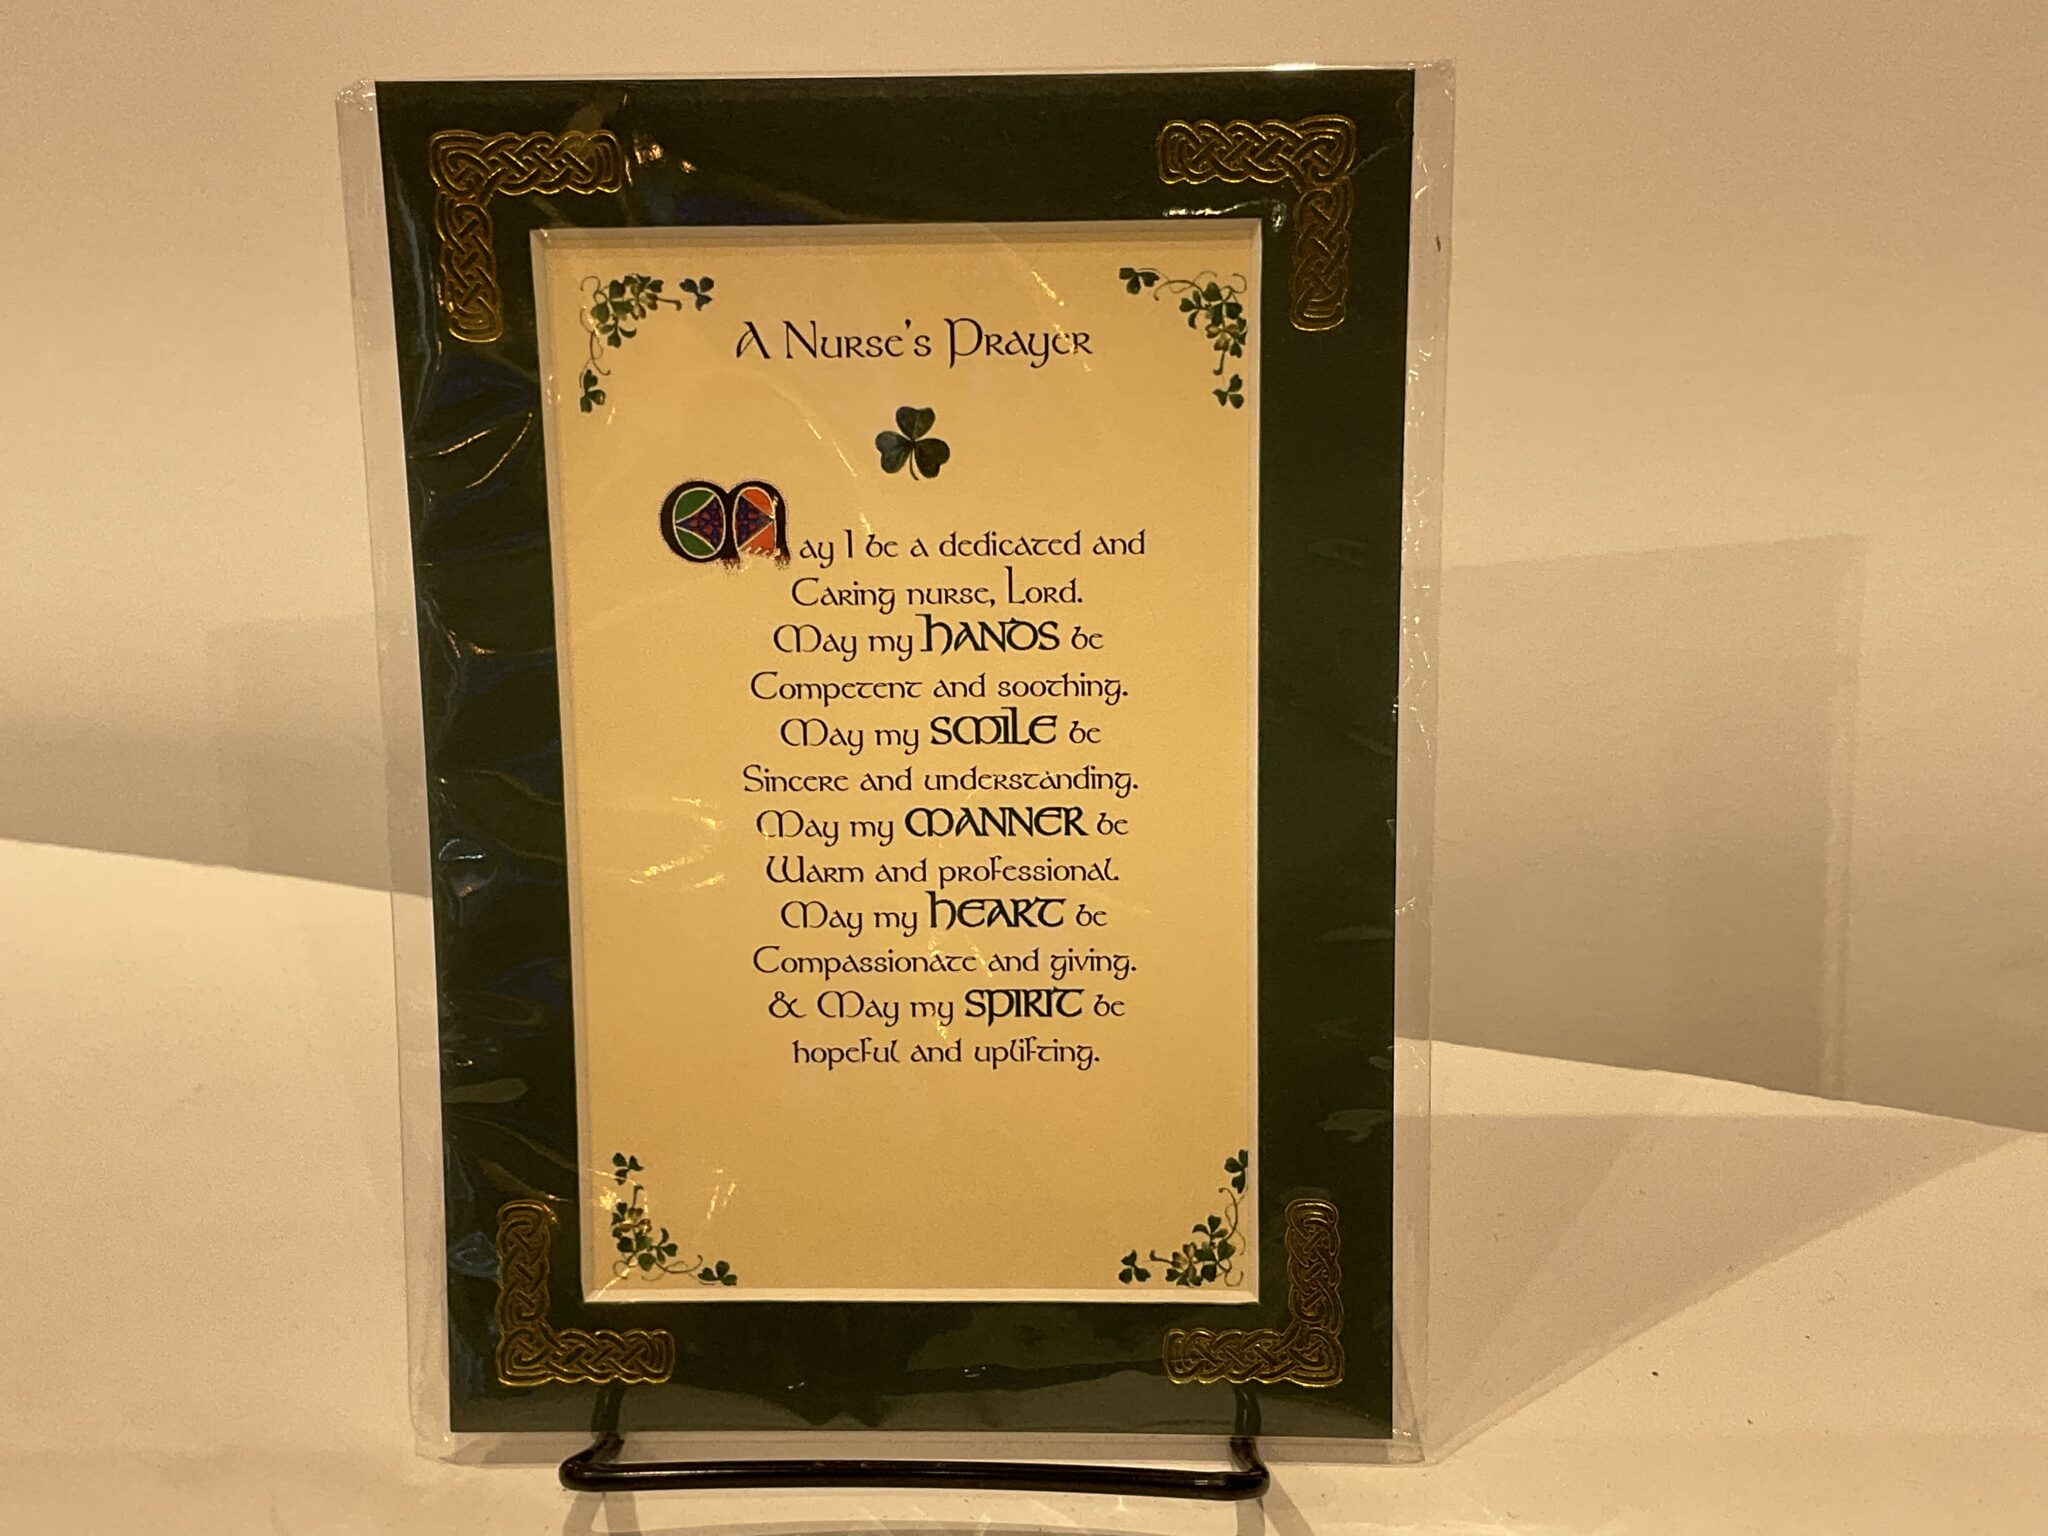 A Nurse's Prayer
May I be a dedicated and
Caring nurse, Lord.
May my HANDS be
Competent and soothing.
May my SMILE be
Sincere and understanding.
May my MANNER be
Warm and professional.
May my HEART be
Compassionate and giving.
& May my SPIRIT be
hopeful and uplifting.